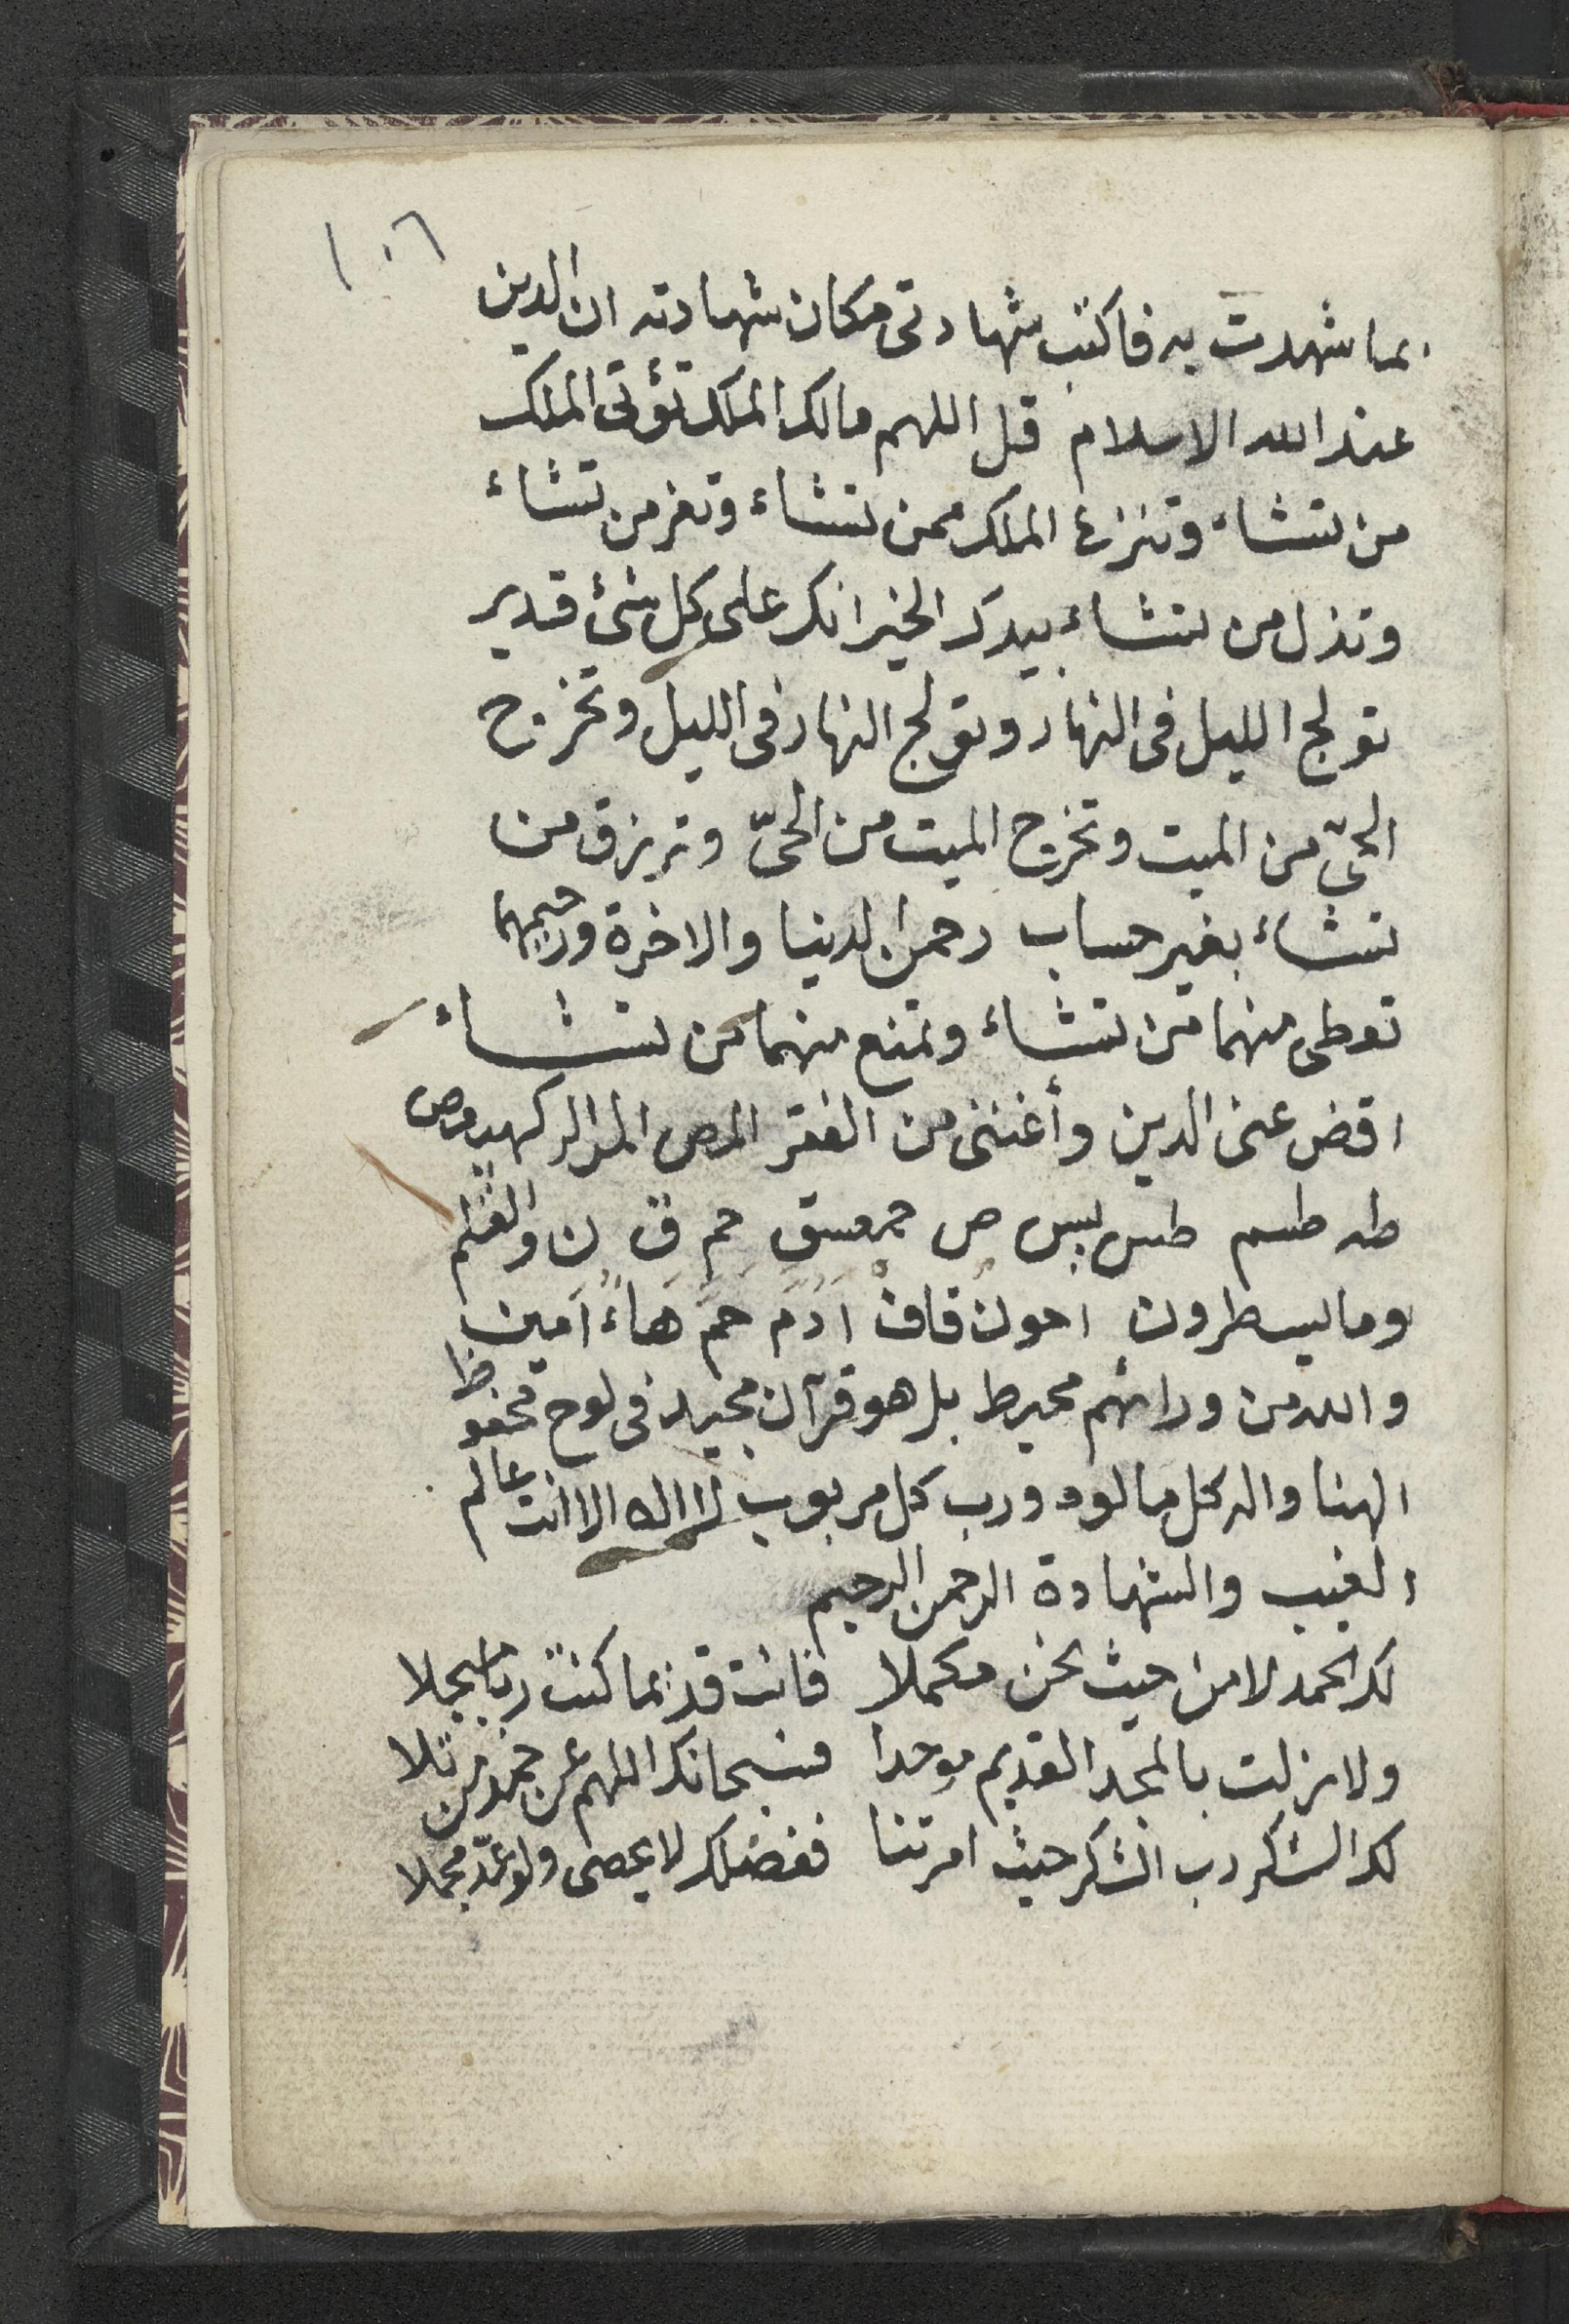 ١٠٦
بما شهدت به فاكتب شهادتى مكان شهادته ان الدين
عند الله الاسلام قل اللهم مالك الملك تؤتى الملك
من تشاء وتنزع الملك ممن تشاء وتعز من تشاء
وتذل من تشاء بيدك الخير انك على كل شئ قدير
تولج الليل فى النهار وتولج النهار فى الليل وتخرج
الحيّ من الميت وتخرج الميت من الحىّ وترزق من
تشاء بغير حساب رحمن الدينا والاخرة ورحيمهما
تعطى منهما من تشاء وتمنع منهما من تشاء
اقض عنى الدين وأغننى من الفقر المص المر الر كهيعص
طه طسم طس يس ص حمعسق حم ق ن والقلم
وما يسطرون احون قاف ادم حم هاء امين
والله من ورائهم محيط بل هو قرآن مجيد فى لوح محفوظ
الهنا واله كل مالوه ورب كل مربوب لا اله الا انت عالم
الغيب والشهادة الرحمن الرحيم
لك الحمد لا من حيث نحن مكملا فانت قديما كنت ربا مبجلا
ولا زلت بالمجد القديم موحدا فسبحانك اللهم عن حمد من تلا
لك الشكر رب الشكر حيث امرتنا ففضلك لا يحصى ولو عدّ مجملا